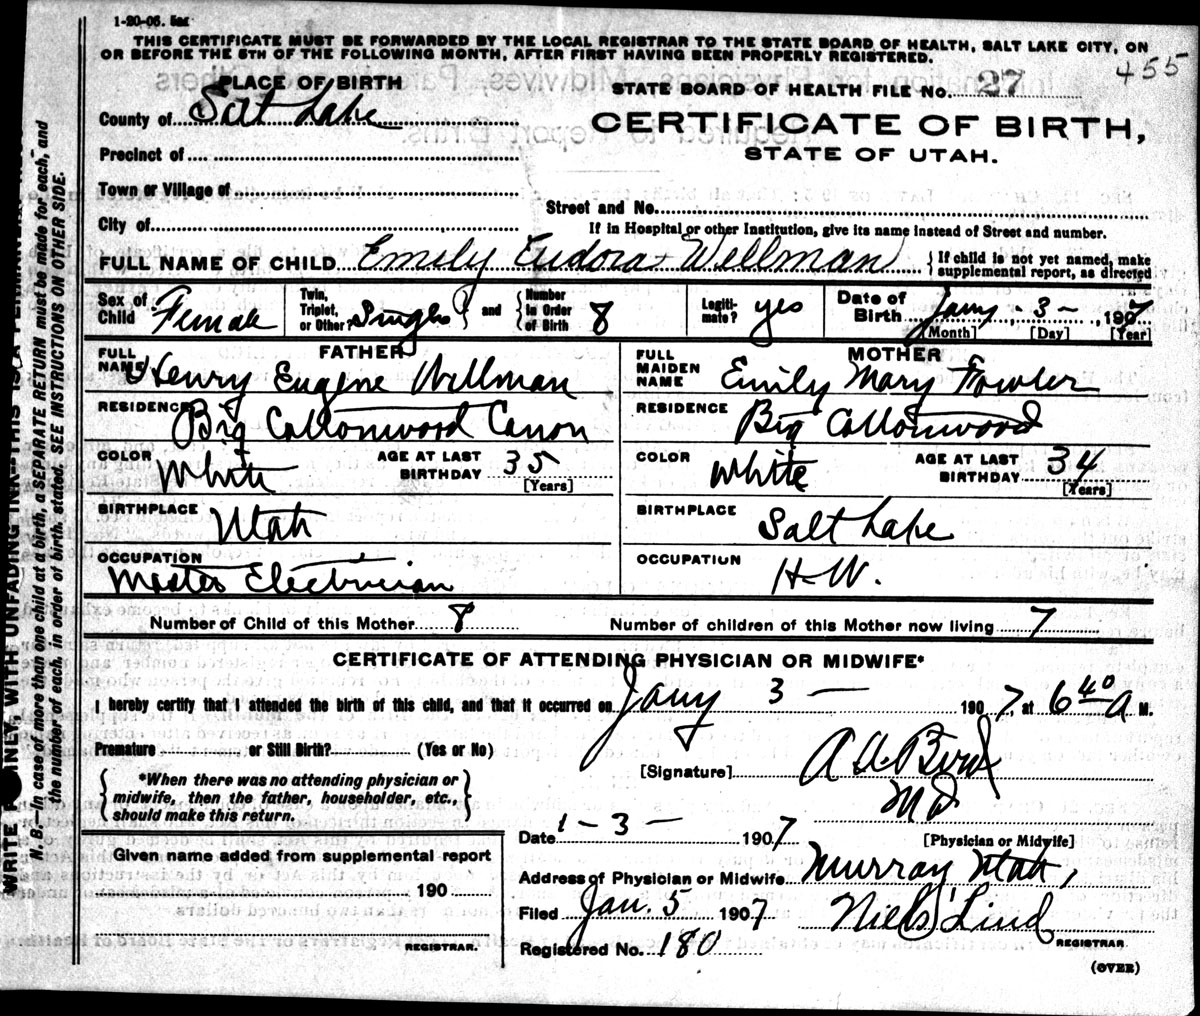 1-20-06. 5m
THIS CERTIFICATE MUST BE FORWARDED BY THE LOCAL REGISTRAR TO THE STATE BOARD OF HEALTH, SALT LAKE CITY, ON
OR BEFORE THE 5TH OF THE FOLLOWING MONTH, AFTER FIRST HAVING BEEN PROPERLY REGISTERED.
455
PLACE OF BIRTH
STATE BOARD OF HEALTH FILE No. 27
County of Salt Lake
CERTIFICATE OF BIRTH,
STATE OF UTAH.
Precinct of
Town or Village of
Street and No.
City of
If in Hospital or other Institution, give its name instead of Street and number.
FULL NAME OF CHILD Emily Eudora Wellman { If child is not yet named, make supplemental report, as directed
Sex of Child Female Twin, Triplet, or Other? Single } and { Number in Order of Birth 8 Legiti- mate? yes Date of Birth Jany - 3 - , 1907
[Month] [Day] [Year]
FATHER
FULL NAME Henry Eugene Willman
RESIDENCE Big Cottonwood Canon
COLOR White AGE AT LAST BIRTHDAY 35 [Years]
BIRTHPLACE Utah
OCCUPATION Master Electrician
MOTHER
FULL MAIDEN NAME Emily Mary Fowler
RESIDENCE Big Cottonwood
COLOR White AGE AT LAST BIRTHDAY 34 [Years]
BIRTHPLACE Salt Lake
OCCUPATION H-W.
Number of Child of this Mother 8 Number of children of this Mother now living 7
CERTIFICATE OF ATTENDING PHYSICIAN OR MIDWIFE*
I hereby certify that I attended the birth of this child, and that it occurred on Jany 3 — 1907, at 6 40 A M.
Premature or Still Birth? (Yes or No)
[Signature] MD
{ *When there was no attending physician or midwife, then the father, householder, etc., should make this return. }
Date 1-3- 1907 [Physician or Midwife]
Given name added from supplemental report
190
REGISTRAR.
Address of Physician or Midwife Murray Utah,
Filed Jan. 5 1907 Niels Lind
REGISTRAR.
Registered No. 180
(OVER)
N. B.—In case of more than one child at a birth, a SEPARATE RETURN must be made for each, and
the number of each, in order of birth, stated. SEE INSTRUCTIONS ON OTHER SIDE.